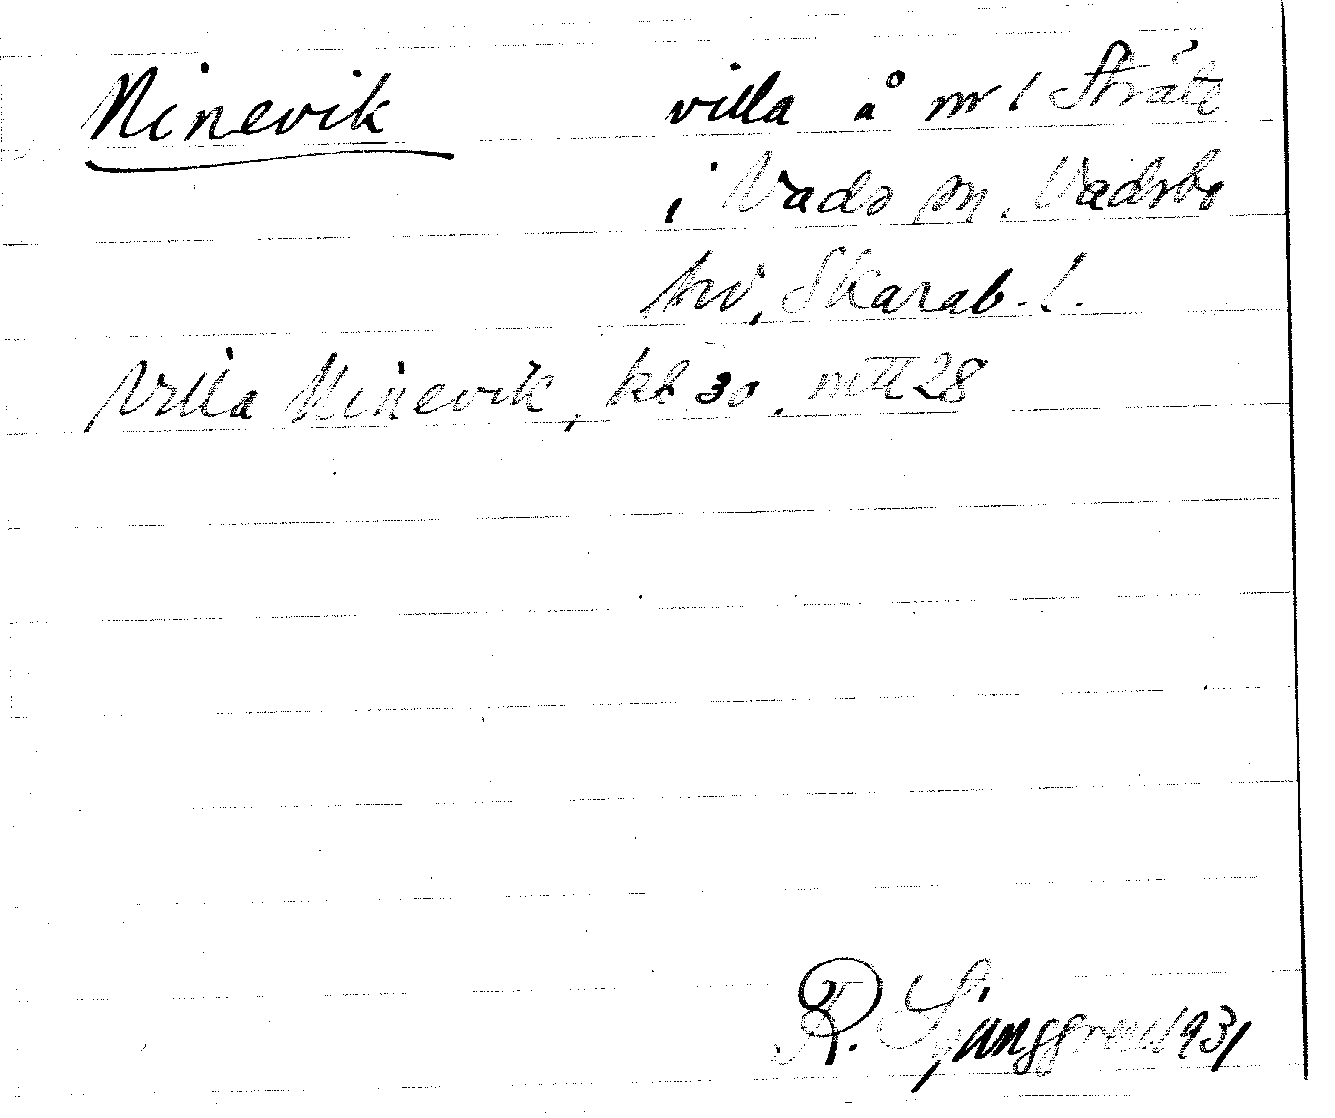 Ninevik villa å nr 1 Stråte
i Vads sn. Vadsbo
hd, Skarab. l.
Villa Ninevik, kb 30, mtl 28
R. Ljunggren 1931